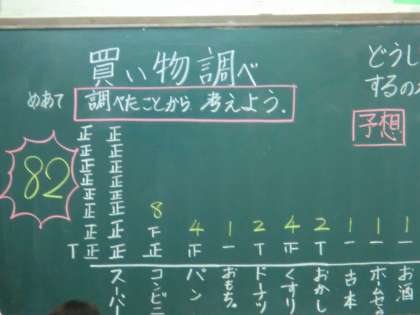 買い物調べ
めあて 調べたことから 考えよう.
どうし
するの
予想
82
正 正
正 正
正 正
正 正
正 正
正 正 8
正 正 下 4 1 2 4 2 1 1 1
T 正 正 正 正 一 T 正 T 一 一 一
スーパー
コンビニ
パン
おもちゃ
ドーナツ
くすり
おかし
古本
ホームセ
お酒